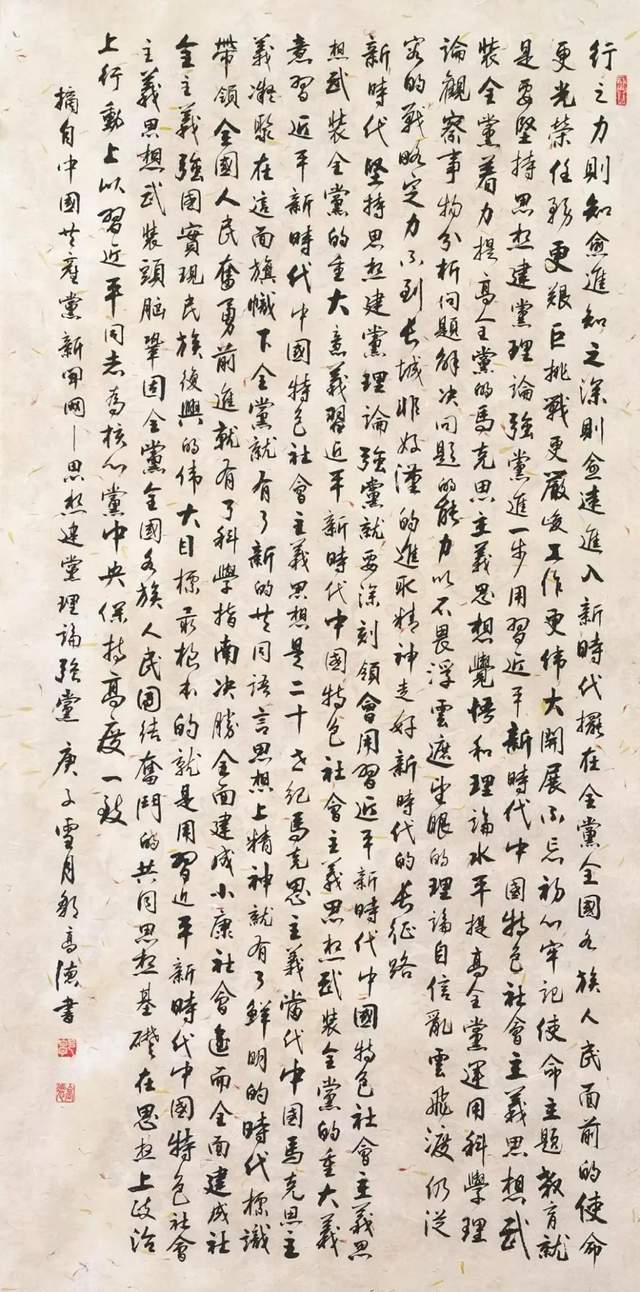 行之力則知愈進知之深則愈達進入新時代擺在全黨全國各族人民面前的使命
更光榮任務更艱巨挑戰更嚴峻工作更偉大開展不忘初心牢記使命主題教育就
是要堅持思想建黨理論強黨進一步用習近平新時代中國特色社會主義思想武
裝全黨着力提高全黨的馬克思主義思想覺悟和理論水平提高全黨運用科學理
論觀察事物分析问題解决问題的能力以不畏浮雲遮望眼的理論自信亂雲飛渡仍從
容的戰略定力不到長城非好漢的進取精神走好新時代的長征路
新時代堅持思想建黨理論強黨就要深刻領會用習近平新時代中國特色社會主義思
想武裝全黨的重大意義習近平新時代中國特色社會主義思想武裝全黨的重大義
意習近平新時代中國特色社會主義思想是二十世紀馬克思主義當代中國馬克思主
義凝聚在這面旗幟下全黨就有了新的共同語言思想上精神就有了鮮明的時代標識
帶領全國人民奮勇前進就有了科學指南决勝全面建成小康社會進而全面建成社
會主義強國實現民族復興的偉大目標最根本的就是用習近平新時代中國特色社會
主義思想武裝頭腦鞏固全黨全國各族人民團结奮鬥的共同思想基礎在思想上政治
上行動上以習近平同志為核心黨中央保持高度一致
摘自中國共產黨新聞網—思想建黨理論強黨 庚子雪月 高德書